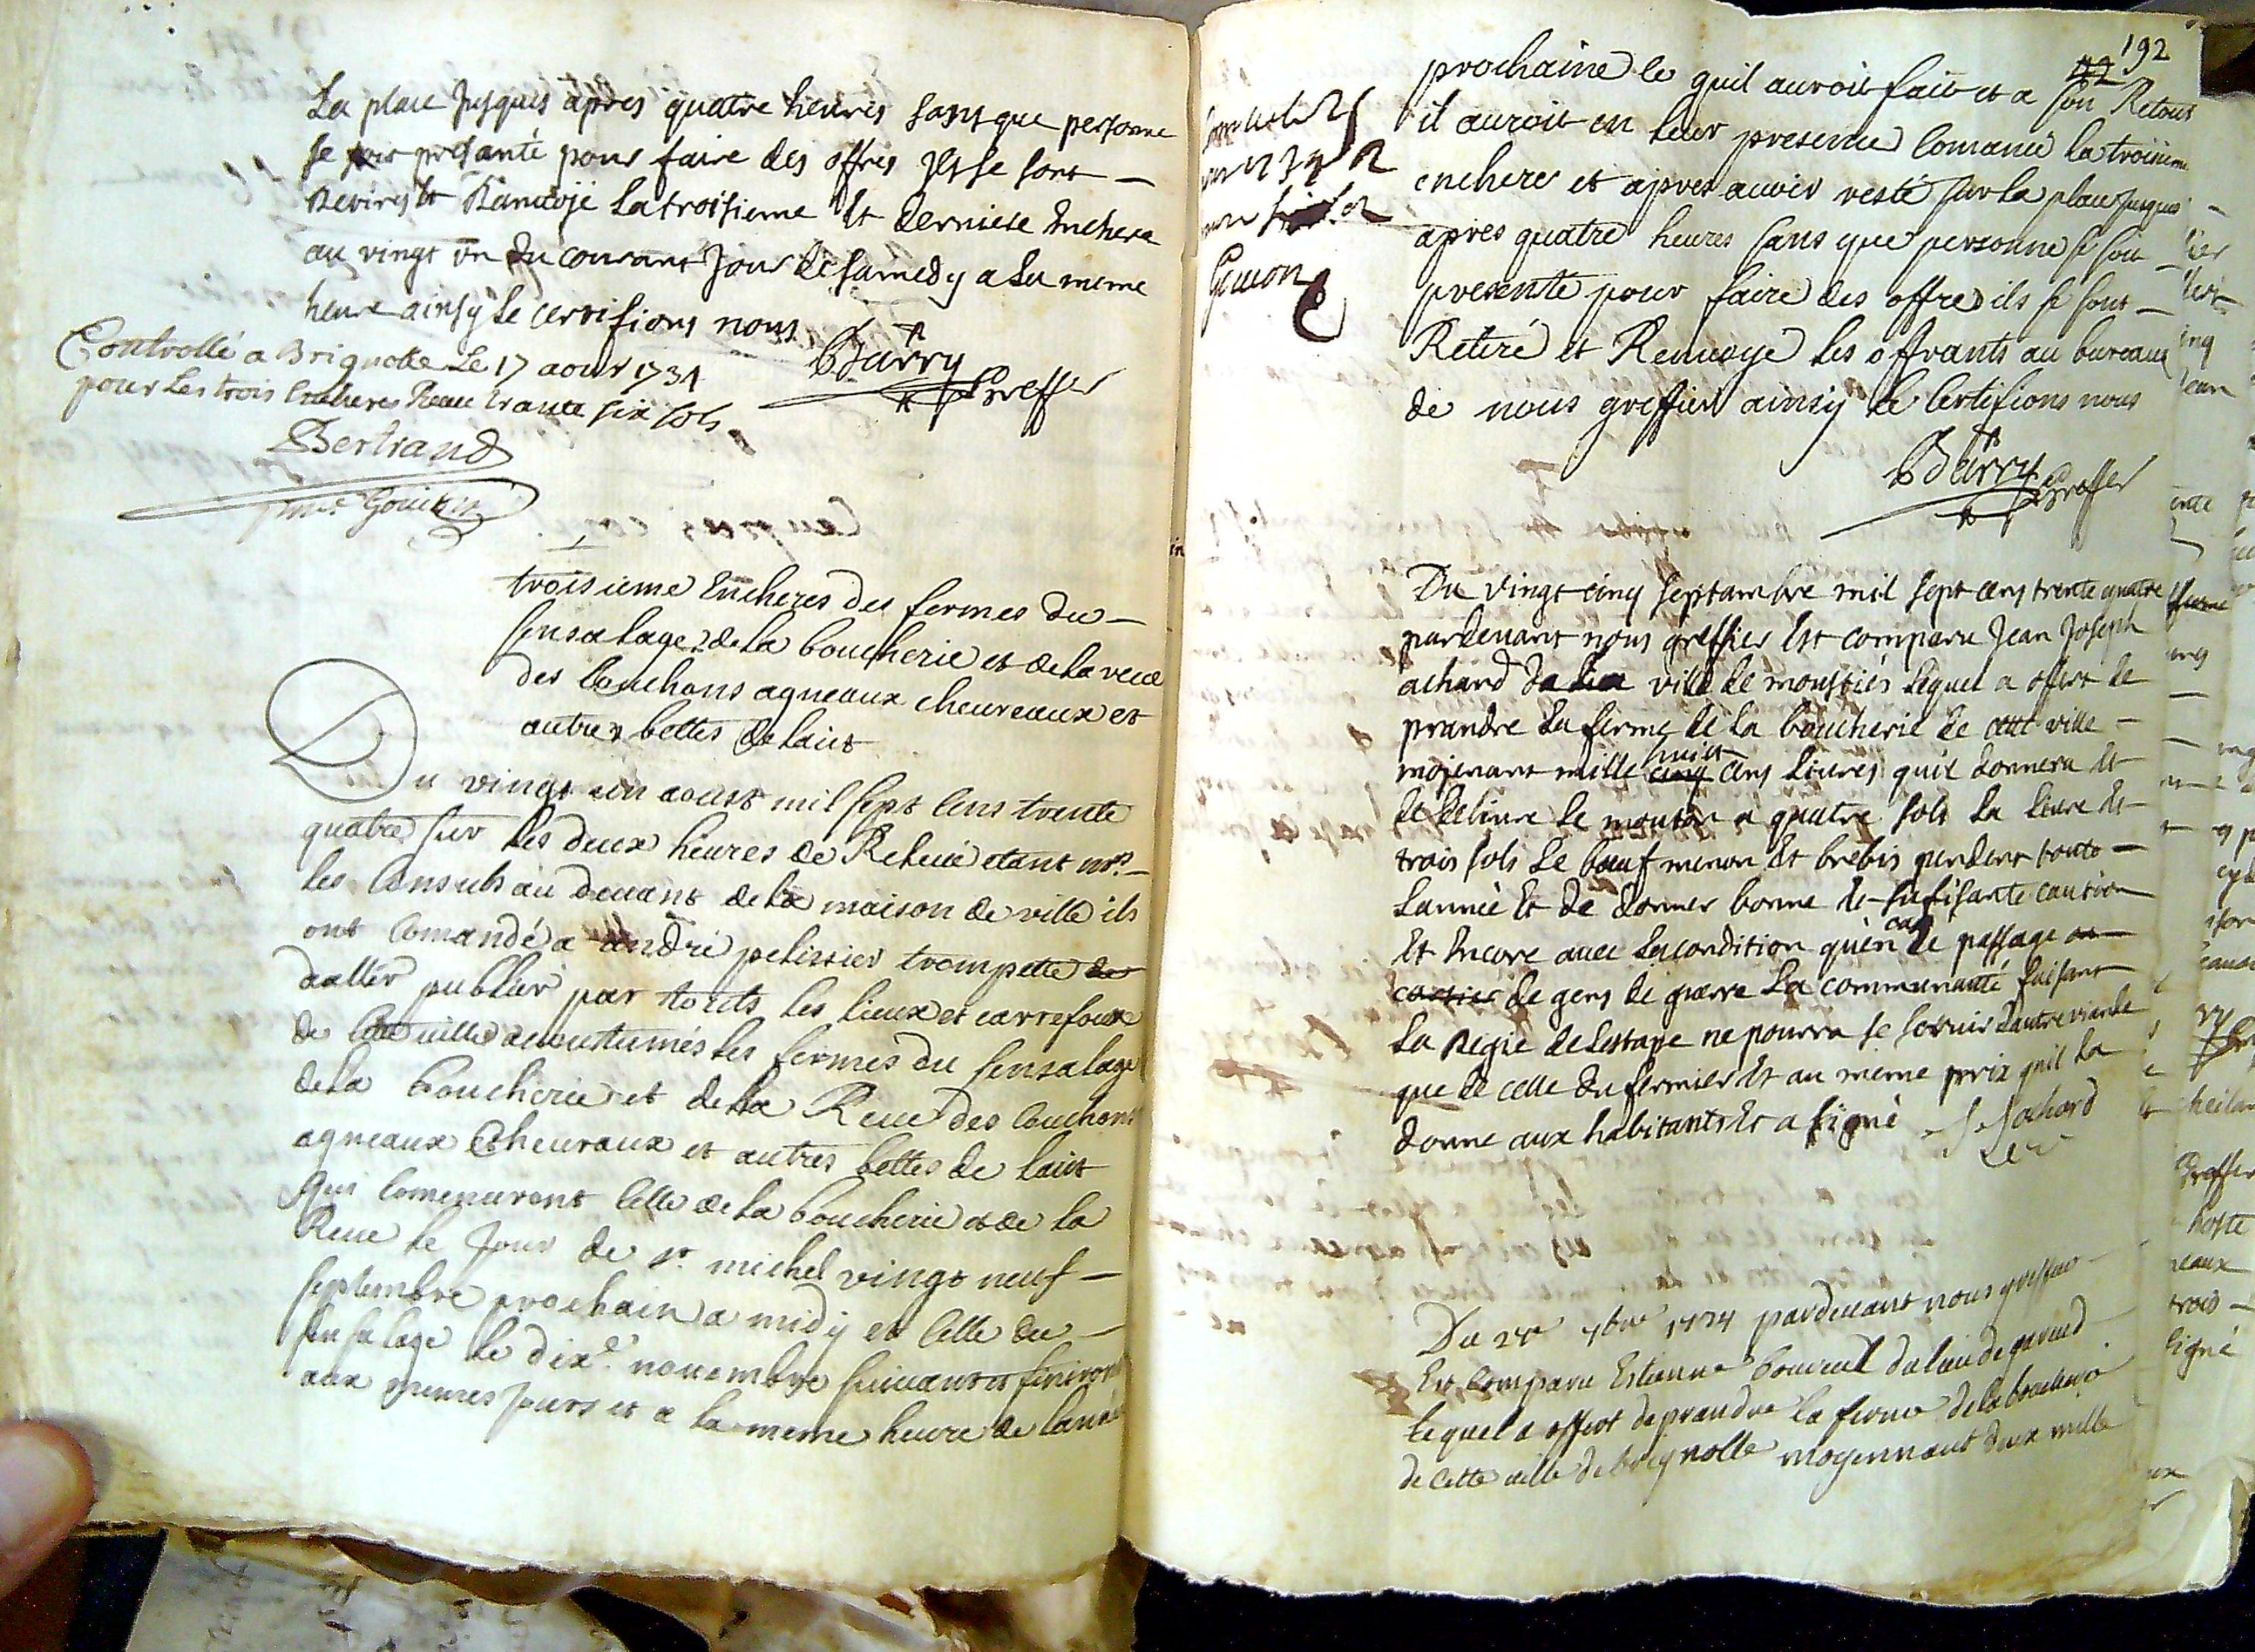 La place Jusques apres quatre heures sans que personne
se presanté pour faire des offres Ils se sont —
Retirés et Ranvoyé la troisieme et derniere Enchere
au vingt un du courant Jour de samedy a la meme
heure ainsy le certifions nous
Barry
Greffier
Controllé a Brignolle Le 17 aout 1734
pour Les trois Encheres Receu trante six sols
Bertrand
troisieme Encheres des fermes du —
sensalage de la boucherie et de la reve
des Couchons agneaux cheureaux et
autres bettes de lait
Du vingt un aoust mil sept Cens trente
quatre sur les deux heures de Relevée etant mrs. —
les Consuls au devant de la maison de ville ils
ont Comandé a andré pelissier trompette de
daller publier par touts les lieux et carrefoux
de la ville acoustumés les fermes du sensalage
de la boucherie et de la Reve des Couchons
agneaux Cheuraux et autres bettes de lait
qui Comenceront Celle de la boucherie et de la
Reve le Jour de st. michel vingt neuf —
septembre prochain a midy et Celle du —
sensalage le dixe. novembre suivant et finiront
aux memes Jours et a la meme heure de lannée
192
prochaine le quil auroit fait et a son Retour
il auroit en leur presence Comancé la troisieme
encheres et apres avoir resté sur la place Jusques
apres quatre heures sans que personne se soit —
presenté pour faire des offres ils se sont —
Retiré et Renvoyé les offrants au bureau
de nous greffier ainsy le Certifions nous
Barry
Greffier
Du vingt cinq septambre mil sept cens trente quatre
pardevant nous greffier Est comparu Jean Joseph
achard de la ville de moustiés lequel a offert de
prandre la ferme de la boucherie de cette ville —
mojenant mille cinq huit cens livres quil donnera et
de delivre le mouton a quatre sols la livre et
trois sols le bœuf menon et brebis pendent toute —
lannée et de donner bonne et sufisante caution
et Encore avec la condition quen cas de passage ou
cartier de gens de guerre la communauté faisant
la Regie de lestape ne pourra se servir dautre viande
que de celle du fermier et au meme prix quil la
donne aux habitants et a signé J J achard
Du 27e 7bre 1734 pardevant nous greffier
Est Comparu Estienne du lieu de
lequel a offert de prandre la ferme de la boucherie
de Cette ville de brignolle moyennant deux mille